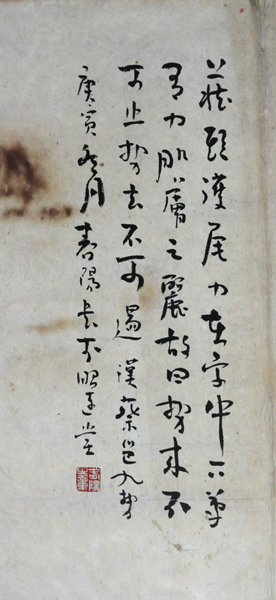 藏頭護尾力在字中下筆
用力肌膚之麗故曰勢來不
可止勢去不可遏漢蔡邕九勢
庚寅冬月春陽書於